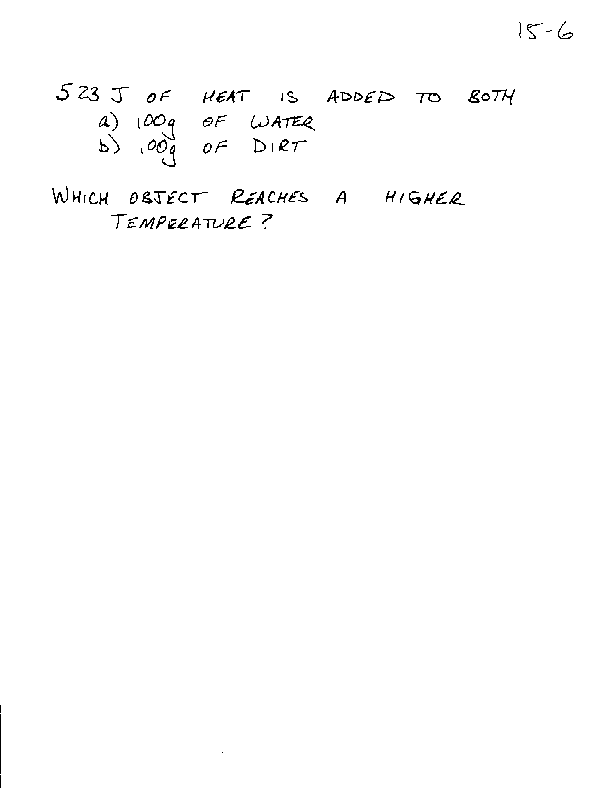 15-6
523 J OF HEAT IS ADDED TO BOTH
a) 100g OF WATER
b) 100g OF DIRT
WHICH OBJECT REACHES A HIGHER
TEMPERATURE?